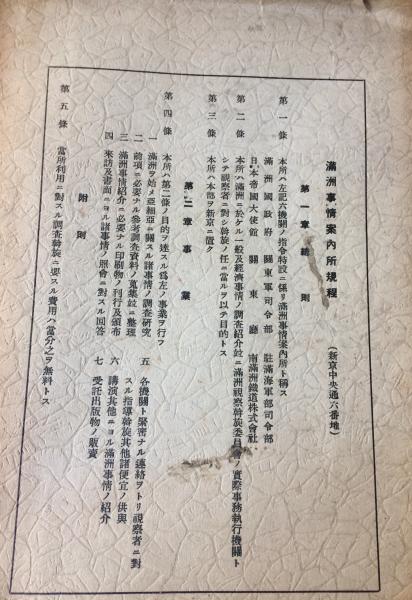 滿洲事情案內所規程
(新京中央通六番地)
第一章 總則
第一條 本所ハ左記六機關ノ指令特設ニ係リ滿洲事情案內所ト稱ス
滿洲國政府 關東軍司令部 駐滿海軍部司令部
日本帝國大使館 關東廳 南滿洲鐵道株式會社
第二條 本所ハ滿洲ニ於ケル一般及經濟事情ノ調査紹介竝ニ滿洲視察斡旋委員會ノ實際事務執行機關ト
シテ視察者ニ對シ斡旋ノ任ニ當ルヲ以テ目的トス
第三條 本所ハ本部ヲ新京ニ置ク
第二章 事業
第四條 本所ハ第二條ノ目的ヲ達スル爲左ノ事業ヲ行フ
一 滿洲ヲ始メ亞細亞ニ關スル諸事情ノ調査硏究
二 前項ニ必要ナル參考調査資料ノ蒐集竝ニ整理
三 滿洲事情紹介ニ必要ナル印刷物ノ刊行及頒布
四 來訪及書面ニヨル諸事情ノ照會ニ對スル回答
五 各機關ト緊密ナル連絡ヲトリ視察者ニ對
スル指導斡旋其他諸便宜ノ供與
六 講演其他ニヨル滿洲事情ノ紹介
七 受託出版物ノ販賣
附則
第五條 當所利用ニ對スル調査斡旋ニ要スル費用ハ當分之ヲ無料トス